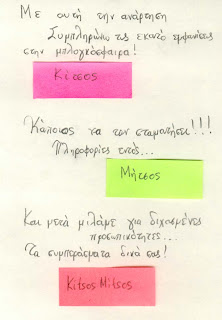 Με αυτή την ανάρτηση
Συμπληρώνω τις εκατό εμφανίσεις
στην μπλογκόσφαιρα!
Κίτσος
Κάποιος να τον σταματήσει!!!
Πληροφορίες εντός...
Μήτσος
Και μετά μιλάμε για διχασμένες
προσωπικότητες...
Τα συμπεράσματα δικά σας!
Kitsos Mitsos